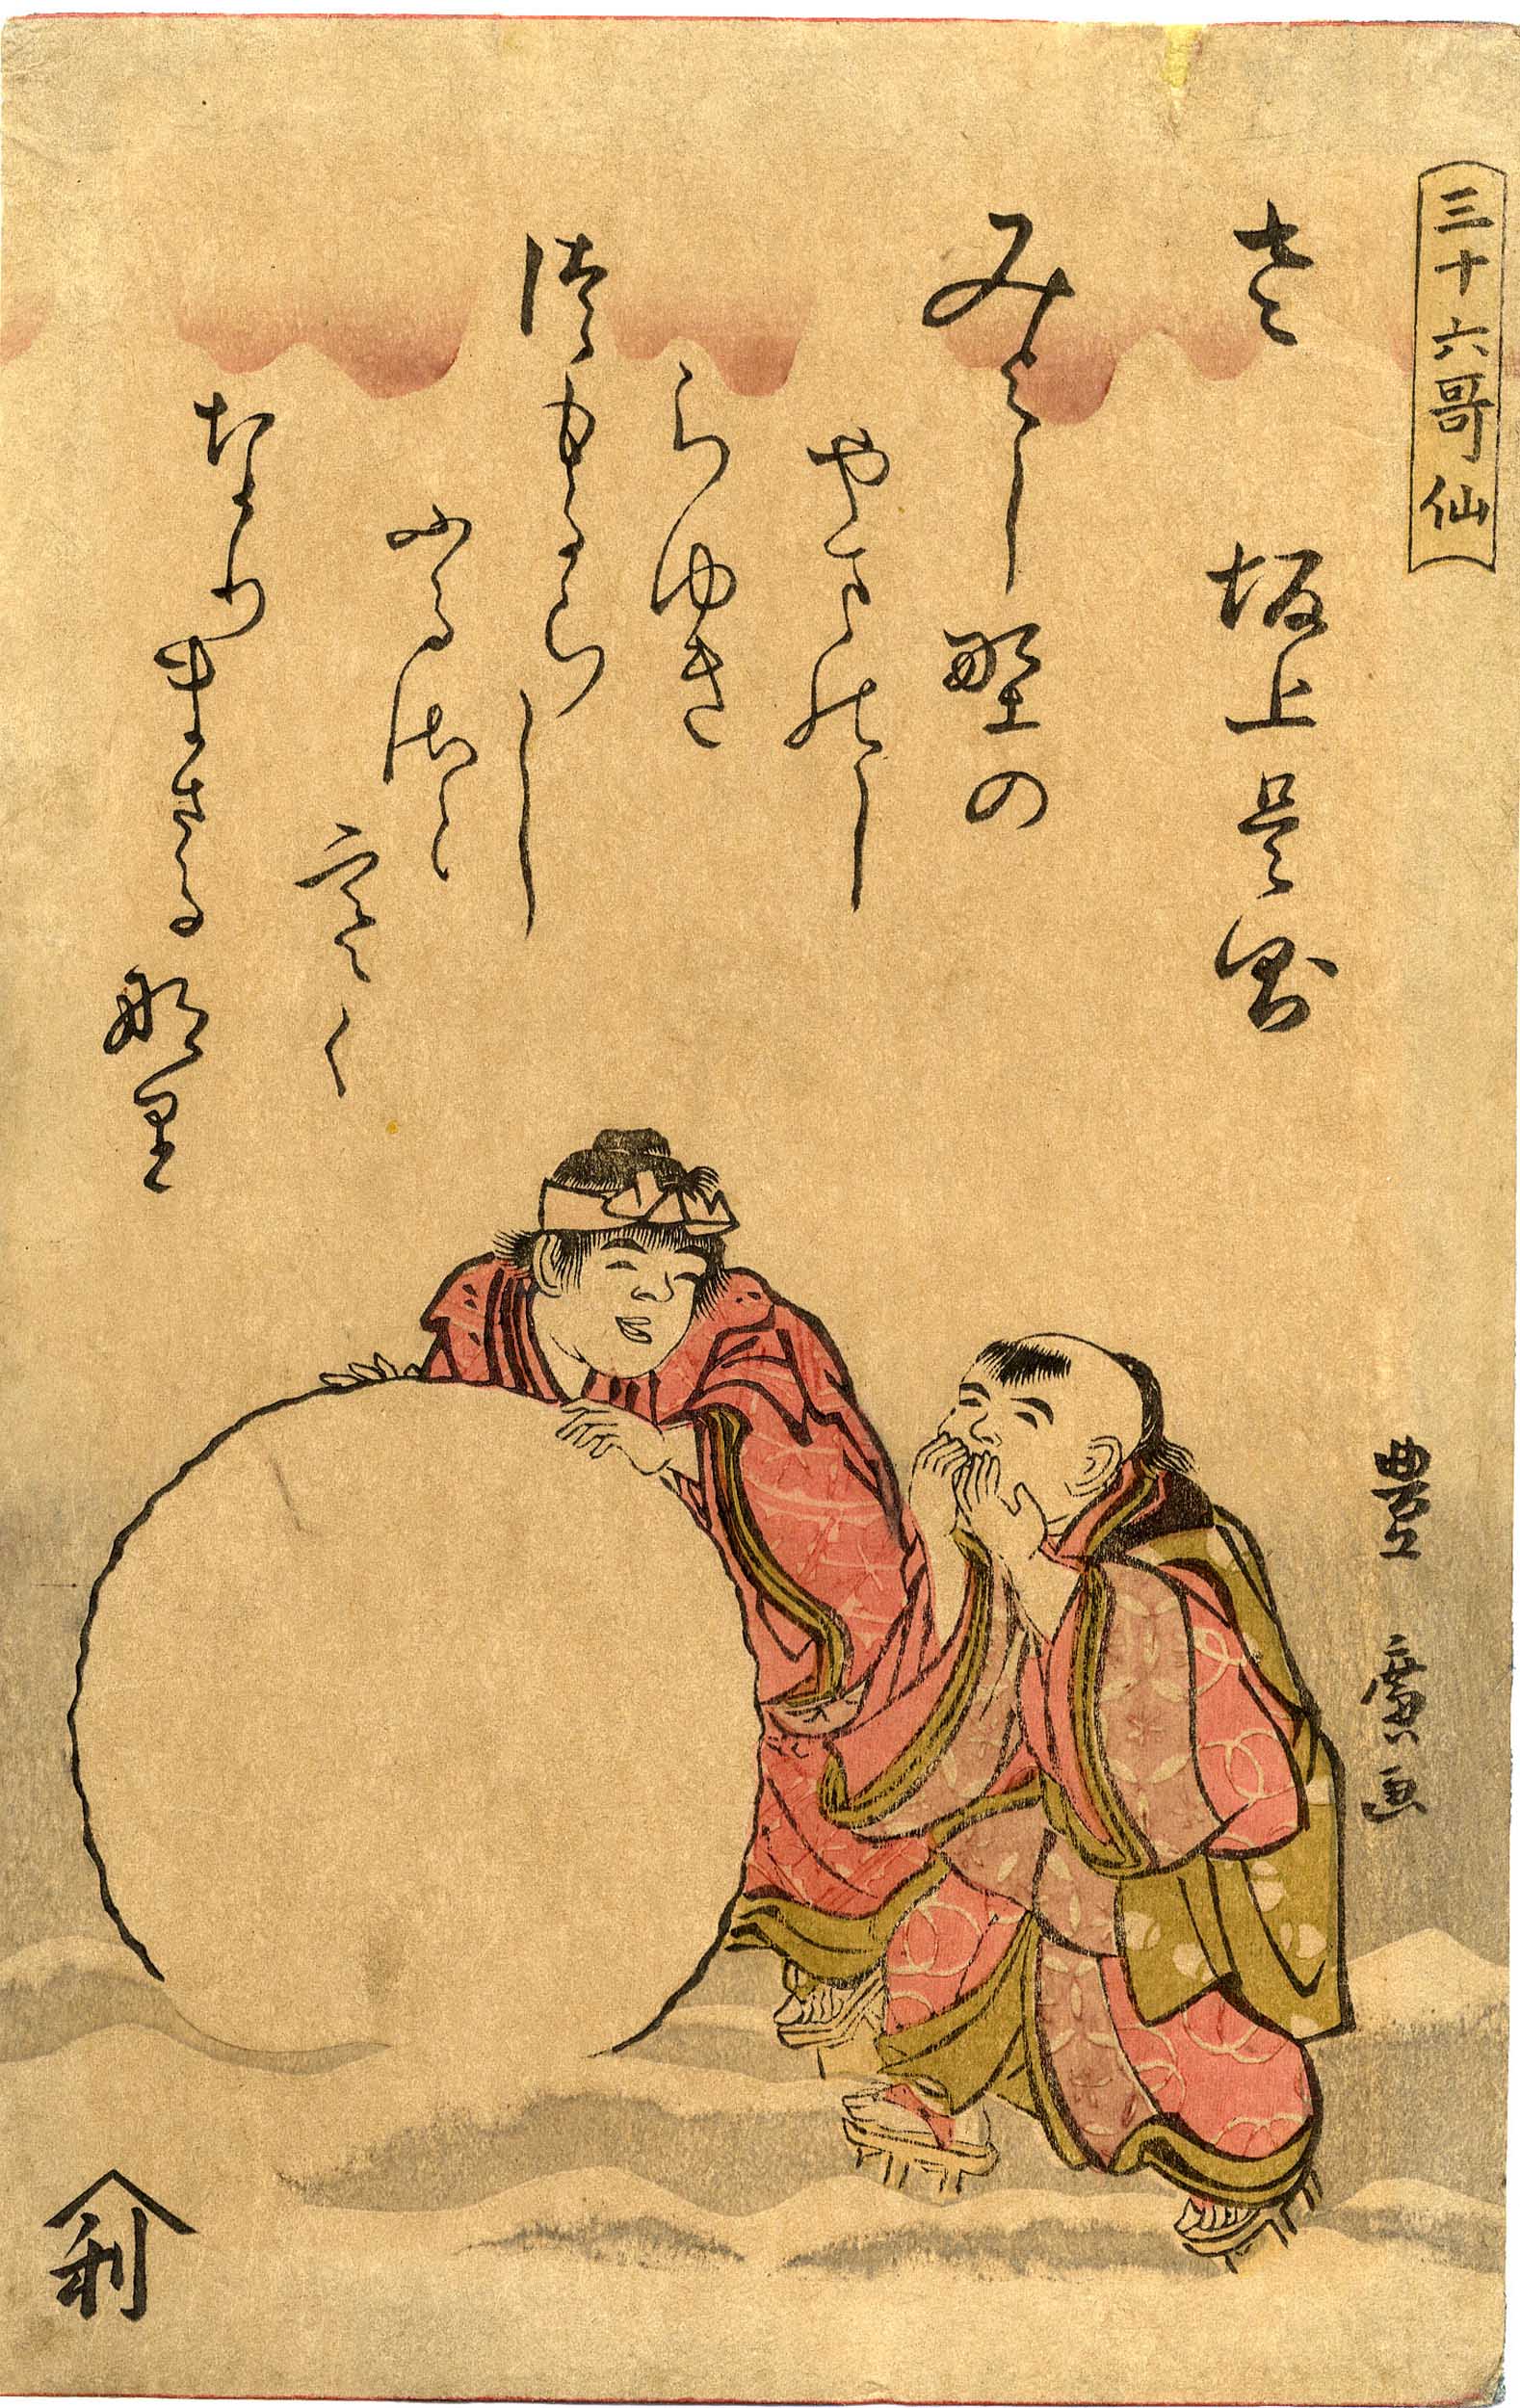 三十六哥仙
左　坂上是則
みよし野の
やまのし
らゆき
つもるらし
ふるさと
寒く
なりまさる那里
豊廣画
利